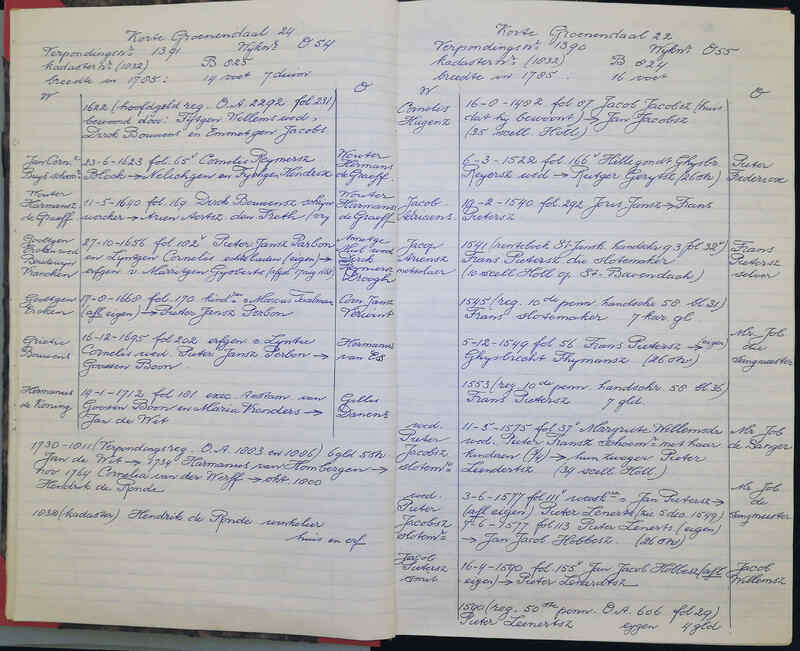 Korte Groenendaal 24
Verpondingsnr 1391 Wijknr O 54
kadasternr (1832) B 825
breedte in 1785: 14 voet 7 duim
W O
1622 (hoofdgeld reg. O.A. 2292 fol 231)
bewoond door: Fijtgen Willems wed.
Dirck Bouwens en Emmetgen Jacobs
Jan Corn.
Buys schoenm
23-6-1623 fol. 65v Cornelis Reymersz
Block → Neeltchgen en Fytchgen Hendricx
Wouter
Hermans
de Graeff.
Wouter
Harmansz
de Graeff
11-5-1640 fol 169 Dirck Bouwensz
wercker → Arien Aertsz den
Wouter
Harmansz
de Graeff
Goeltgen
Broken wed
Vrancken
27-10-1656 fol 102v Pieter Jansz Parbon
en Lyntgen Cornelis echtelieden (eigen) →
erfgen v. Marritgen Gysberts
Annetge
wed
Dirck
Reymersz
Droogh
Goeltgen
Broken
17-8-1668 fol. 170 kind
(afl eigen) → Pieter Jansz Perbon
Corn Jansz
Verwint
Grietie
Bouwens
16-12-1695 fol 202 erfgen v Lyntie
Cornelis wed. Pieter Jansz Perbon →
Goossen Boon
Hermanus
van Es
Hermanus
de Koning
19-1-1712 fol 101 exec. testam. van
Goosen Boon en Maria Reenders →
Jan de Wit
Gillis
Danens
1730-1811 (Verpondingsreg. O.A. 1003 en 1006) 6 gld 5 sth.
Jan de Wit → 1734 Harmanus van Hombergen →
nov 1764 Cornelia van der Werff → okt 1800
Hendrik de Ronde
1832 (kadaster) Hendrik de Ronde winkelier
huis en erf
Korte Groenendaal 22
Verpondingsnr 1390 Wijknr O 55
kadasternr (1832) B 824
breedte in 1785: 16 voet
W O
Cornelis
Hugenz
16-8-1482 fol 87 Jacob Jacobsz (huis
dat hij bewoont) → Jan Jacobsz
(35 scell Holl)
6-3-1522 fol 166v Hillegondt Ghysbr.
Reyersz wed → Rutger Gerytsz (26 sth)
Pieter
Fredericxz
Jacob
Adriaens
19-2-1540 fol 292 Joris Jansz → Frans
Pietersz
Jacop
Ariensz
metselaer
1541 (renteboek St Jansk. handschr 93 fol 32v)
Frans Pietersz die slotemaker
(10 scell Holl op St. Bavendach)
Frans
Pietersz
1545 (reg. 10de penn. handschr 58 bl 31)
Frans slotemaker 7 kar gl
5-12-1549 fol 56 Frans Pietersz → (eigen)
Ghysbrecht Thymansz (26 sth.)
Mr. Job
die
sangmeester
1553 (reg 10de penn. handschr. 58 bl 36)
Frans Pietersz 7 gld
wed.
Pieter
Jacobsz
slotemr
11-5-1575 fol 37v Margriete Willemsdr
wed. Pieter Fransz schoenmr met haar
kinderen (¾) → hun zwager Pieter
Leendertsz (34 scell Holl)
Mr. Job
de Sanger
wed.
Pieter
Jacobsz
slotemr
3-6-1577 fol 111v weeskmr v. Jan Pietersz →
(afl eigen) Pieter Lenerts (zie 5 dec. 1549)
7-6-1577 fol 113 Pieter Lenerts (eigen)
→ Jan Jacob Hobbesz. (26 sth)
Mr. Job
de
sangmeester
Jacob
Pietersz
smit
16-4-1590 fol 155v Jan Jacob Hobbesz (afl
eigen) → Pieter Lenerdtsz
Jacob
Willemsz
1590 (reg. 50ste penn. O.A. 606 fol 29)
Pieter Leenertsz eygen 4 gld